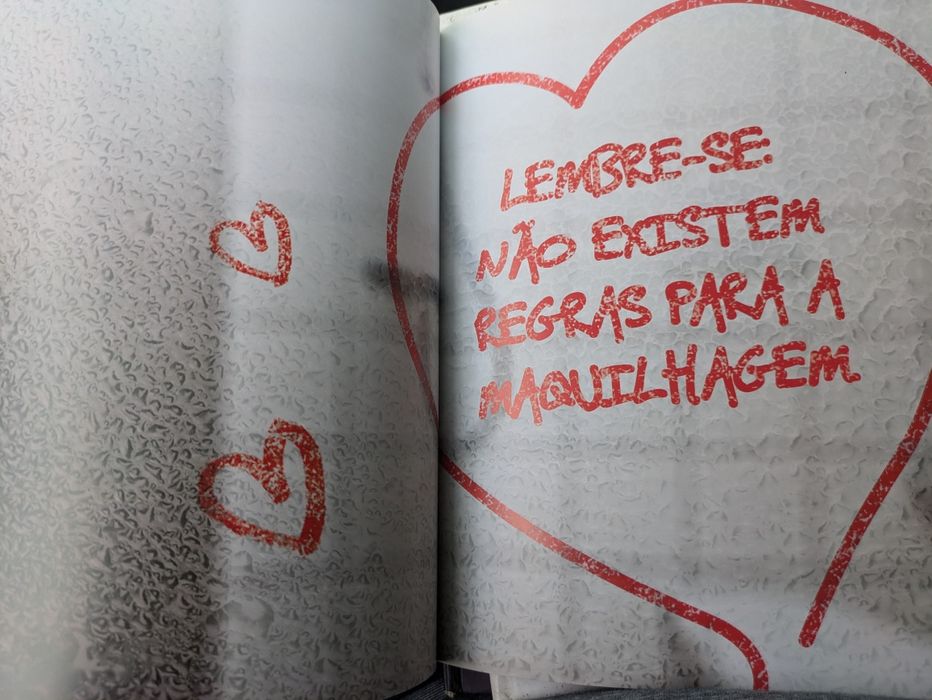 LEMBRE-SE:
NÃO EXISTEM
REGRAS PARA A
MAQUILHAGEM.